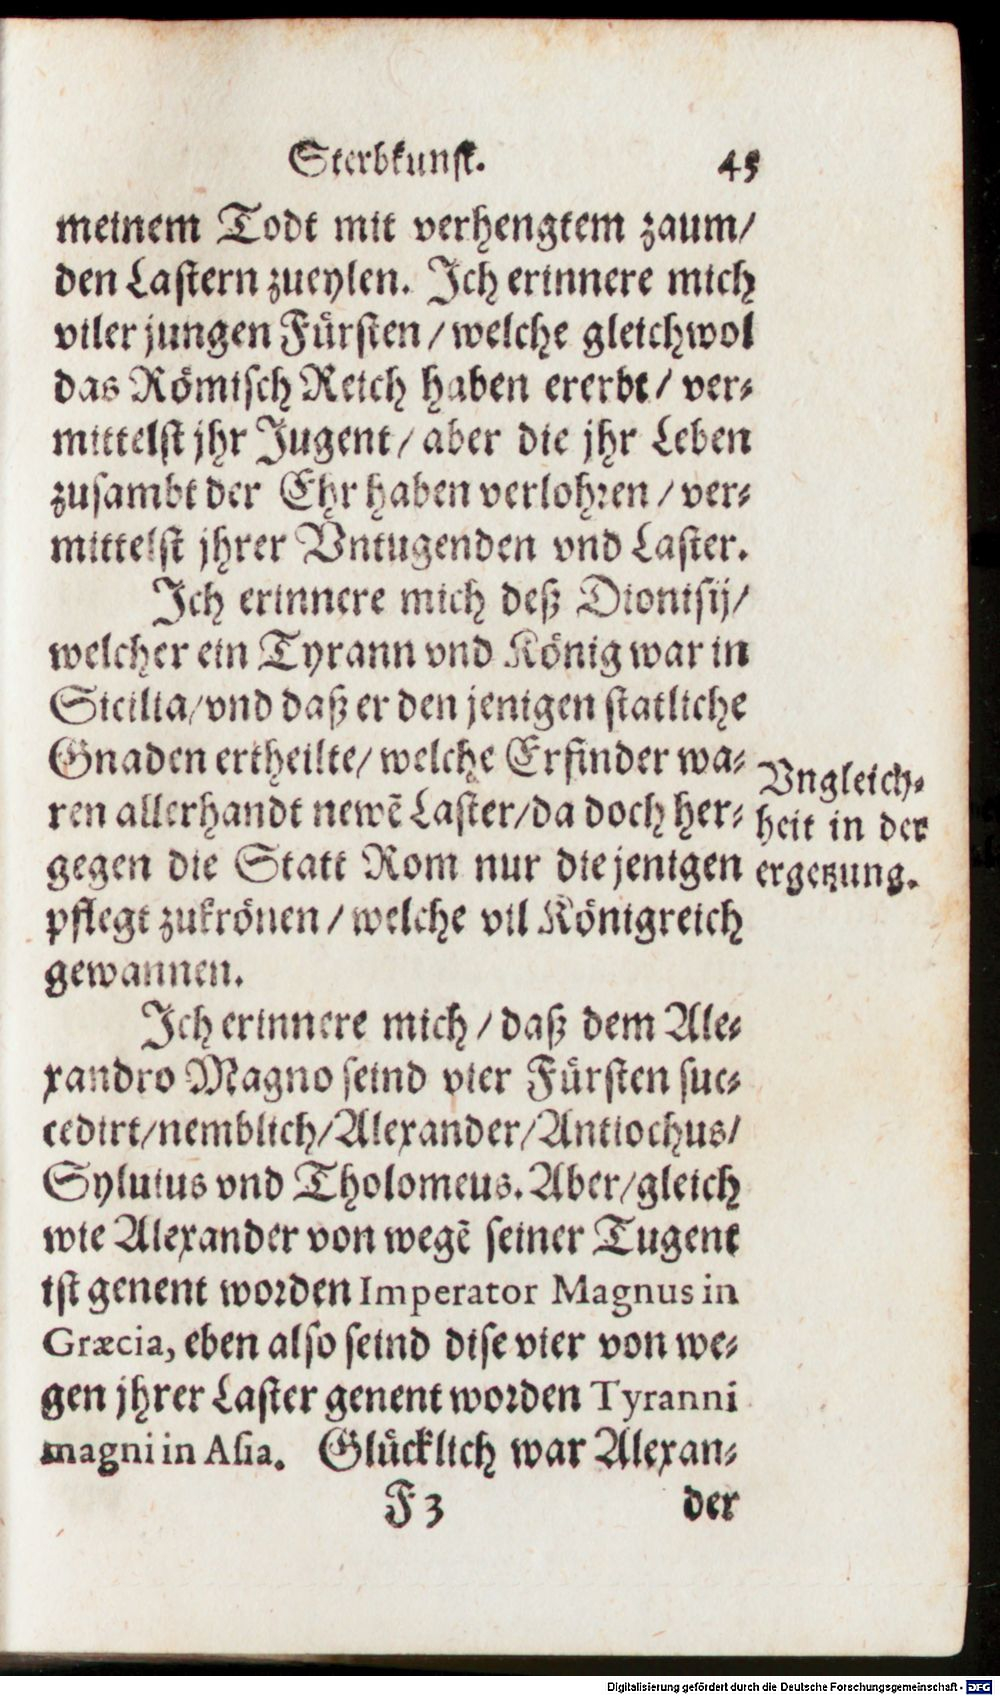 Sterbkunst. 45
meinem Todt mit verhengtem zaum/
den Lastern zueylen. Ich erinnere mich
viler jungen Fürsten/welche gleichwol
das Römisch Reich haben ererbt/ ver-
mittelst jhr Jugent/ aber die jhr Leben
zusambt der Ehr haben verlohren/ ver-
mittelst jhrer Vntugenden vnd Laster.
Ich erinnere mich deß Dionisij/
welcher ein Tyrann vnd König war in
Sicilia/vnd daß er den jenigen statliche
Gnaden ertheilte/ welche Erfinder wa-
ren allerhandt newẽ Laster/da doch her-
gegen die Statt Rom nur die jenigen
pflegt zukrönen/ welche vil Königreich
gewannen.
Vngleich-
heit in der
ergetzung.
Ich erinnere mich/ daß dem Ale-
xandro Magno seind vier Fürsten suc-
cedirt/nemblich/Alexander/Antiochus/
Syluius vnd Tholomeus. Aber/gleich
wie Alexander von wegẽ seiner Tugent
ist genent worden Imperator Magnus in
Græcia, eben also seind dise vier von we-
gen jhrer Laster genent worden Tyranni
magni in Asia. Glücklich war Alexan-
F 3 der
Digitalisierung gefördert durch die Deutsche Forschungsgemeinschaft - DFG